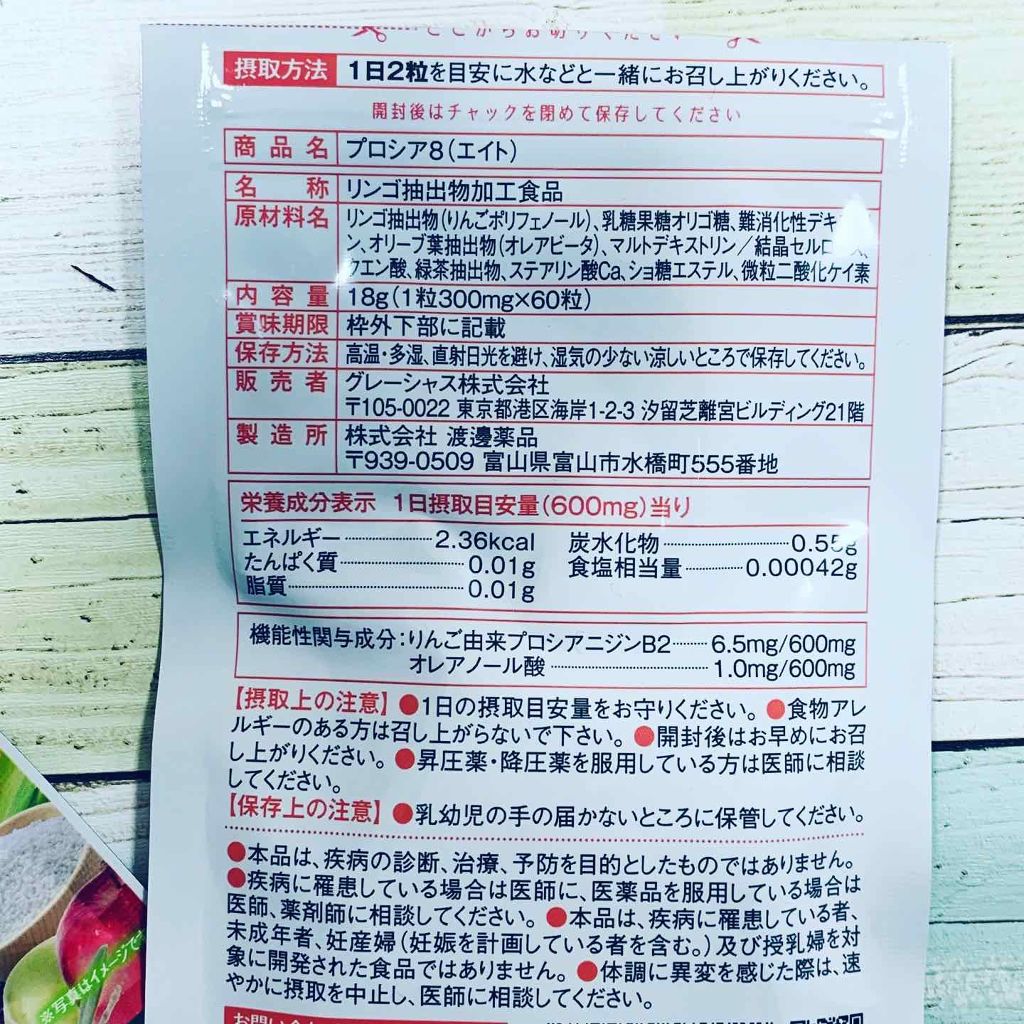 ここからお切りください
摂取方法 1日2粒を目安に水などと一緒にお召し上がりください。
開封後はチャックを閉めて保存してください
商品名 プロシア8(エイト)
名称 リンゴ抽出物加工食品
原材料名 リンゴ抽出物(りんごポリフェノール)、乳糖果糖オリゴ糖、難消化性デキ
ン、オリーブ葉抽出物(オレアビータ)、マルトデキストリン/結晶セルロ
クエン酸、緑茶抽出物、ステアリン酸Ca、ショ糖エステル、微粒二酸化ケイ素
内容量 18g(1粒300mg×60粒)
賞味期限 枠外下部に記載
保存方法 高温・多湿、直射日光を避け、湿気の少ない涼しいところで保存してください。
販売者 グレーシャス株式会社
〒105-0022 東京都港区海岸1-2-3 汐留芝離宮ビルディング21階
製造所 株式会社 渡邊薬品
〒939-0509 富山県富山市水橋町555番地
栄養成分表示 1日摂取目安量(600mg)当り
エネルギー 2.36kcal 炭水化物 0.55g
たんぱく質 0.01g 食塩相当量 0.00042g
脂質 0.01g
機能性関与成分:りんご由来プロシアニジンB2 6.5mg/600mg
オレアノール酸 1.0mg/600mg
【摂取上の注意】●1日の摂取目安量をお守りください。●食物アレ
ルギーのある方は召し上がらないで下さい。●開封後はお早めにお召
し上がりください。●昇圧薬・降圧薬を服用している方は医師に相談
してください。
【保存上の注意】●乳幼児の手の届かないところに保管してください。
●本品は、疾病の診断、治療、予防を目的としたものではありません。
●疾病に罹患している場合は医師に、医薬品を服用している場合は
医師、薬剤師に相談してください。●本品は、疾病に罹患している者、
未成年者、妊産婦(妊娠を計画している者を含む。)及び授乳婦を対
象に開発された食品ではありません。●体調に異変を感じた際は、速
やかに摂取を中止し、医師に相談してください。
※写真はイメージで